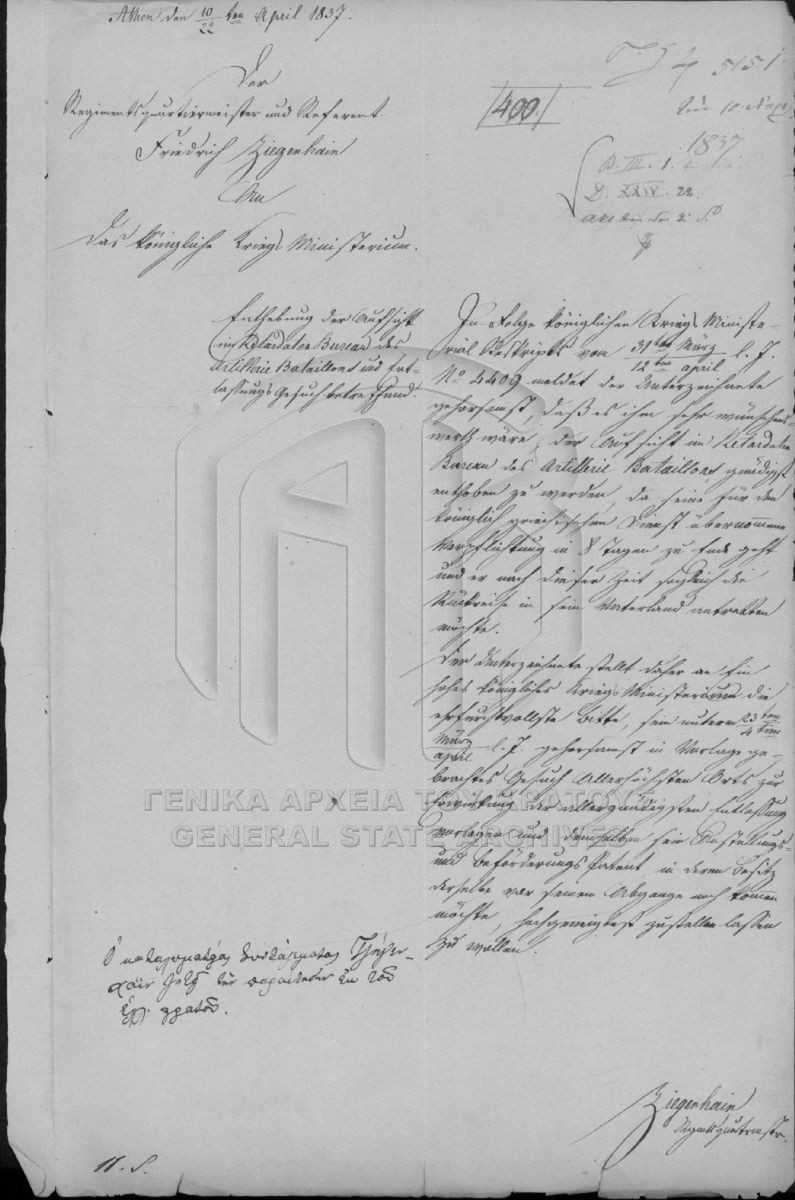 Athen den 10/22 ten April 1837.
Der
Regimentsquartiermeister und Referent
Friedrich Ziegenhain
An
Das Königliche Kriegs Ministerium.
/400/
5151
1837
B. III. 1.
D. XXIV. 22.
Enthebung der Aufsicht
im Retardaten Bureau des
Artillerie Bataillons und Ent-
lassungs Gesuch betreffend.
In Folge königlichen Kriegs Ministe-
rial Reskripts vom 31ten März/12ten April l. J.
No 4409 meldet der Unterzeichnete
gehorsamst, daß es ihm sehr wünschens-
werth wäre, der Aufsicht im Retardaten
Bureau des Artillerie Bataillons gnädigst
enthoben zu werden, da seine für den
königlich griechischen Dienst übernommene
Verpflichtung in 8 Tagen zu Ende geht
und er nach dieser Zeit sogleich die
Rückreise in sein Vaterland antretten
möchte.
Der Unterzeichnete stellt daher an Ein
hohes königliches Kriegs Ministerium die
ehrfurchtvollste Bitte, sein unterm 23ten März/4ten
April l. J. gehorsamst in Vorlage ge-
brachtes Gesuch Allerhöchsten Orts zur
Erwirkung der allergnädigsten Entlassung
vorlegen und demselben sein Anstellungs-
und Beförderungs Patent, in deren Besitz
derselbe vor seinem Abgange noch kommen
möchte, hochgeneigtest zustellen lassen
zu wollen.
Ὁ καταλυματίας
ζητεῖ τὴν παραίτησιν ἐκ τοῦ
Ziegenhain
Regmtsquartrmstr.
11. S.
ΓΕΝΙΚΑ ΑΡΧΕΙΑ ΤΟΥ ΚΡΑΤΟΥΣ
GENERAL STATE ARCHIVES